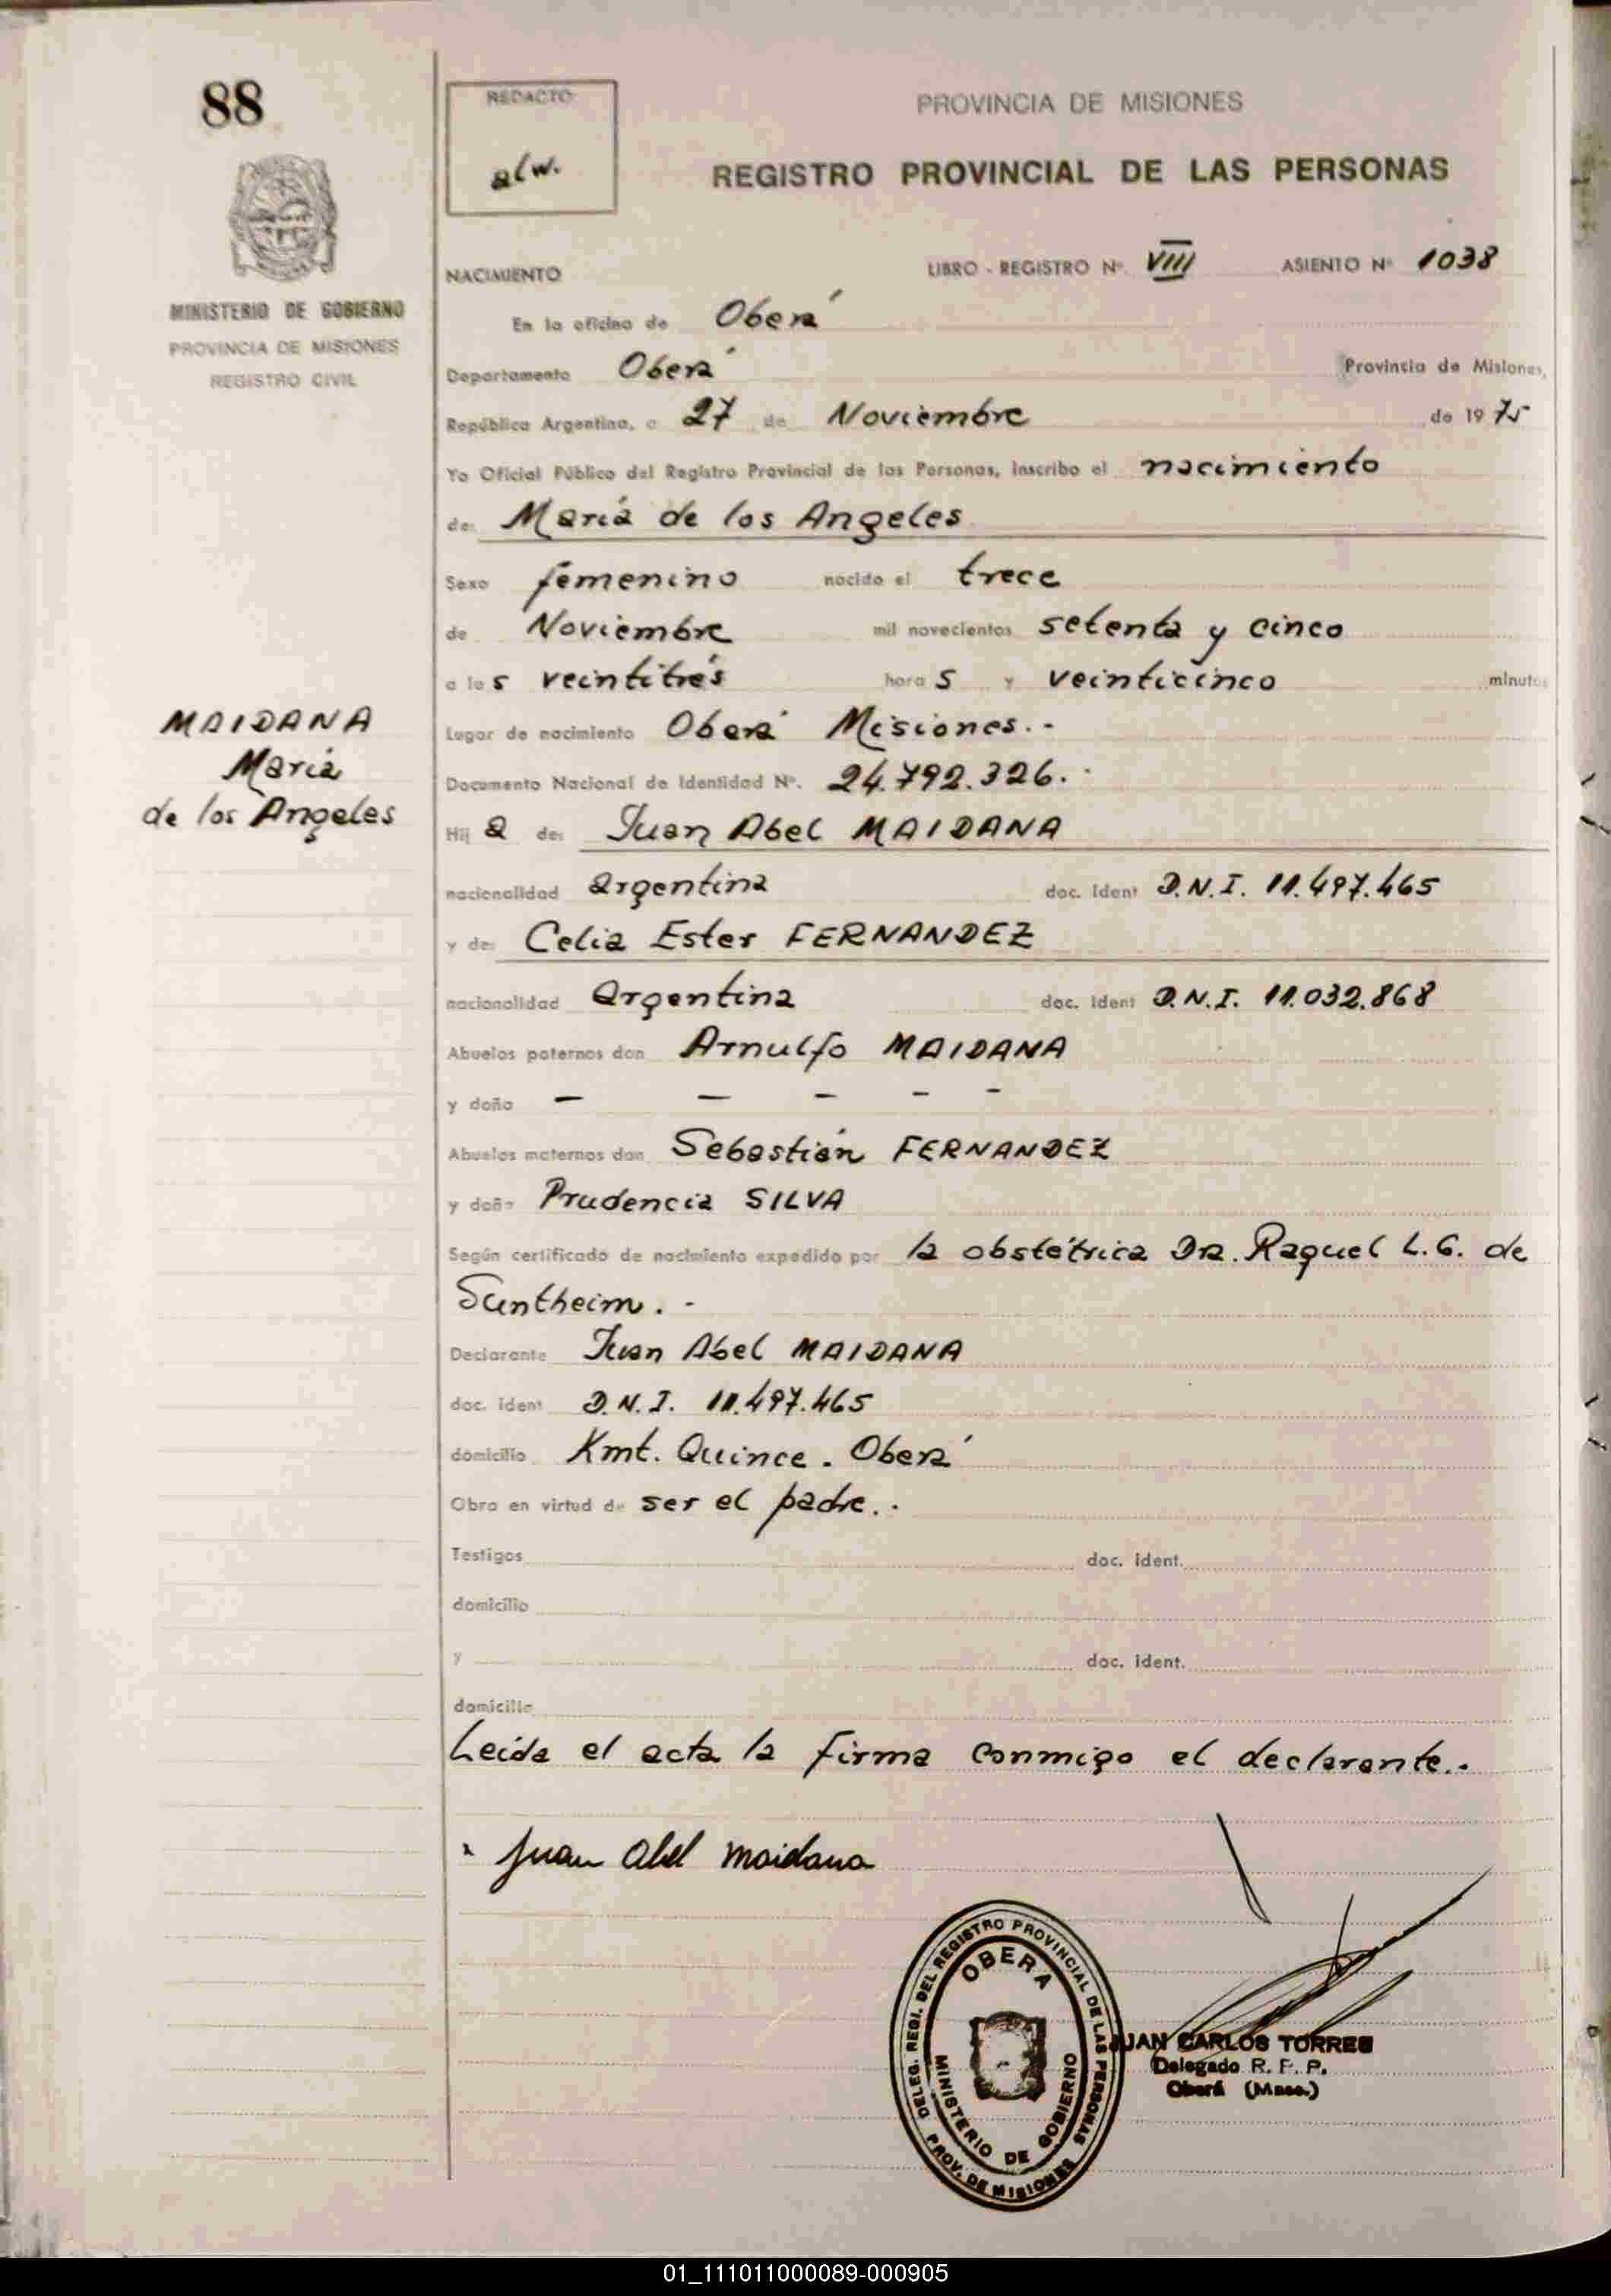 88
REDACTO
alw.
PROVINCIA DE MISIONES
REGISTRO PROVINCIAL DE LAS PERSONAS
MINISTERIO DE GOBIERNO
PROVINCIA DE MISIONES
REGISTRO CIVIL
NACIMIENTO
LIBRO - REGISTRO Nº VIII ASIENTO Nº 1038
En la oficina de Oberá
Departamento Oberá Provincia de Misiones,
República Argentina, a 27 de Noviembre de 1975
Yo Oficial Público del Registro Provincial de las Personas, inscribo el nacimiento
de: María de los Angeles
Sexo femenino nacido el trece
de Noviembre mil novecientos setenta y cinco
a las veintitrés horas y veinticinco minutos
MAIDANA
María
de los Angeles
Lugar de nacimiento Oberá Misiones.-
Documento Nacional de Identidad Nº. 24.792.326.-
Hija de: Juan Abel MAIDANA
nacionalidad argentina doc. ident D.N.I. 11.497.465
y de: Celia Ester FERNANDEZ
nacionalidad argentina doc. ident D.N.I. 11.032.868
Abuelos paternos don Arnulfo MAIDANA
y doña — — — — —
Abuelos maternos don Sebastián FERNANDEZ
y doña Prudencia SILVA
Según certificado de nacimiento expedido por la obstétrica Dra. Raquel L.G. de
Suntheim.-
Declarante Juan Abel MAIDANA
doc. ident D.N.I. 11.497.465
domicilio Kmt. Quince. Oberá
Obra en virtud de ser el padre..
Testigos doc. ident.
domicilio
y doc. ident.
domicilio
Leída el acta la firma conmigo el declarante..
Juan Abel Maidana
DELEG. REGI. DEL REGISTRO PROVINCIAL DE LAS PERSONAS
OBERA
MINISTERIO DE GOBIERNO
PROV. DE MISIONES
JUAN CARLOS TORRES
Delegado R. P. P.
Oberá (Mnes.)
01_111011000089-000905